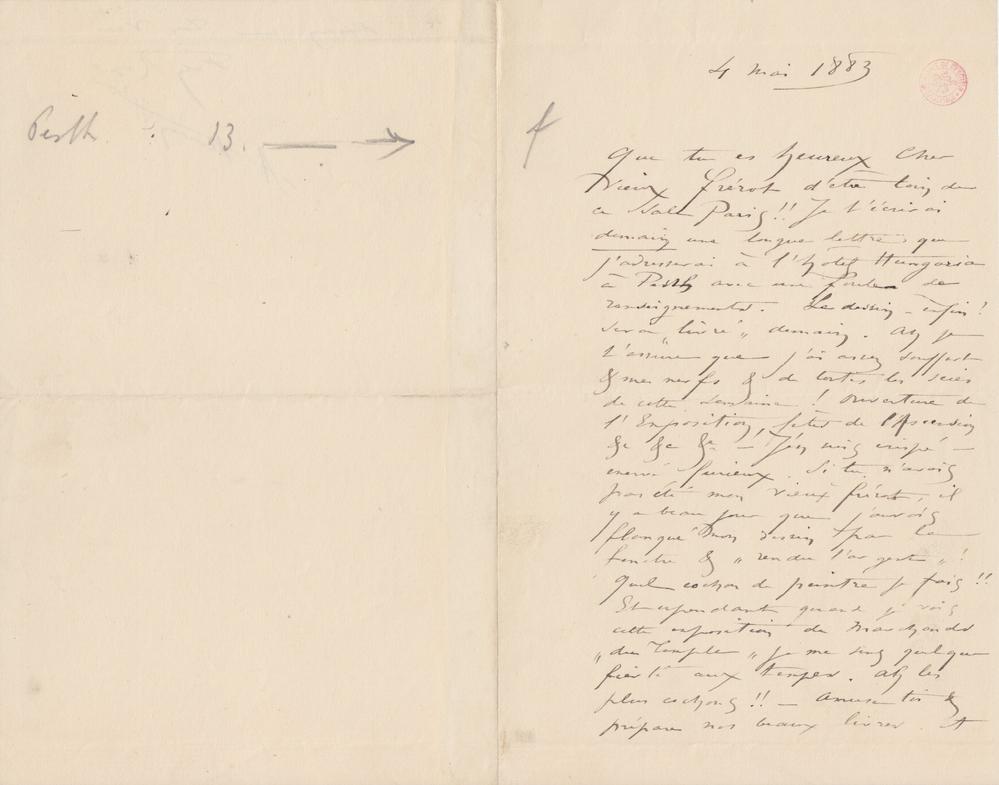 Pesth 13.
4 mai 1883
Que tu es heureux cher
Vieux frérot d'être loin de
ce Sale Paris!! Je t'écrirai
demain une longue lettre que
j'adresserai à l'hôtel Hungaria
à Pesth avec une foule de
renseignements. Le dessin – enfin!
sera „livré„ demain. Ah je
t'assure que j'ai assez souffert
& mes nerfs & de toutes les scies
de cette Semaine! Ouverture de
l'Exposition, fêtes de l'Ascension
&c &c &c – J'en suis crispé –
énervé furieux. Si tu n'avais
pas été mon vieux frérot, il
y a beau jour que j'aurais
flanqué mon dessin par la
fenêtre & „rendu l'argent„!
Quel cochon de peintre je fais!!
Et cependant quand je vois
cette exposition de Marchands
„du Temple„ je me sens quelque
fierté aux tempes. Ah les
plus cochons!! – Amuse toi &
prépare nos beaux livres. A